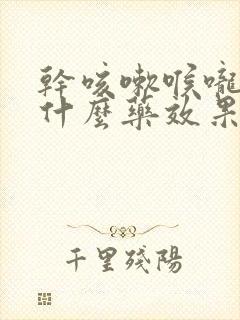 幹咳嗽喉嚨
什麼藥效果
千里殘陽